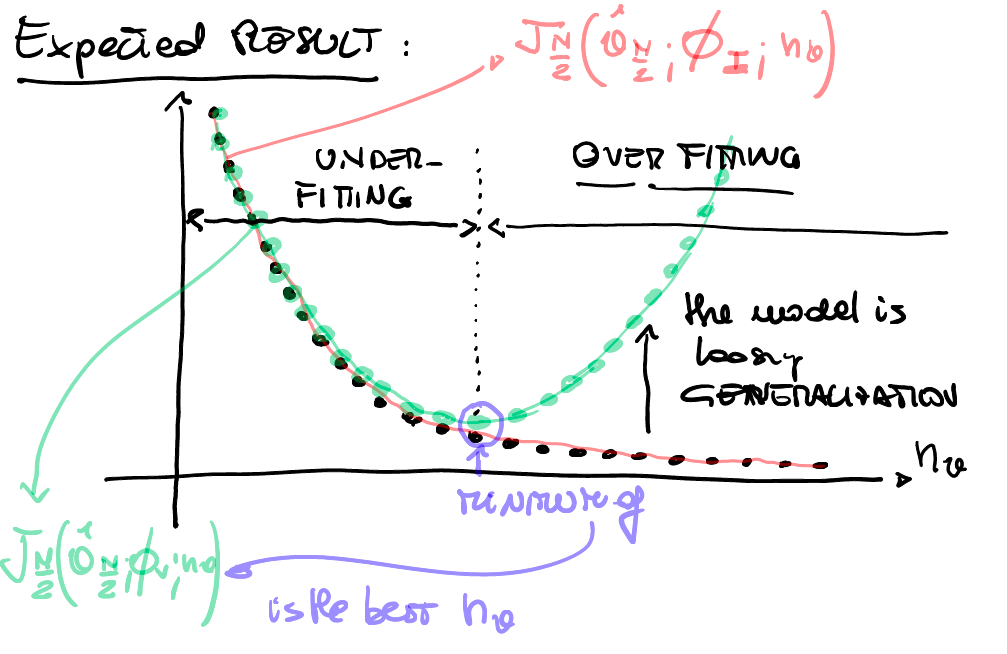 Expected RESULT :
J_{N/2}(θ̂_{N/2}; ϕ_I; n_θ)
UNDER-
FITTING
OVER FITTING
the model is
loosing
GENERALIZATION
n_θ
MINIMUM of
J_{N/2}(θ̂_{N/2}; ϕ_V; n_θ)
is the best n_θ